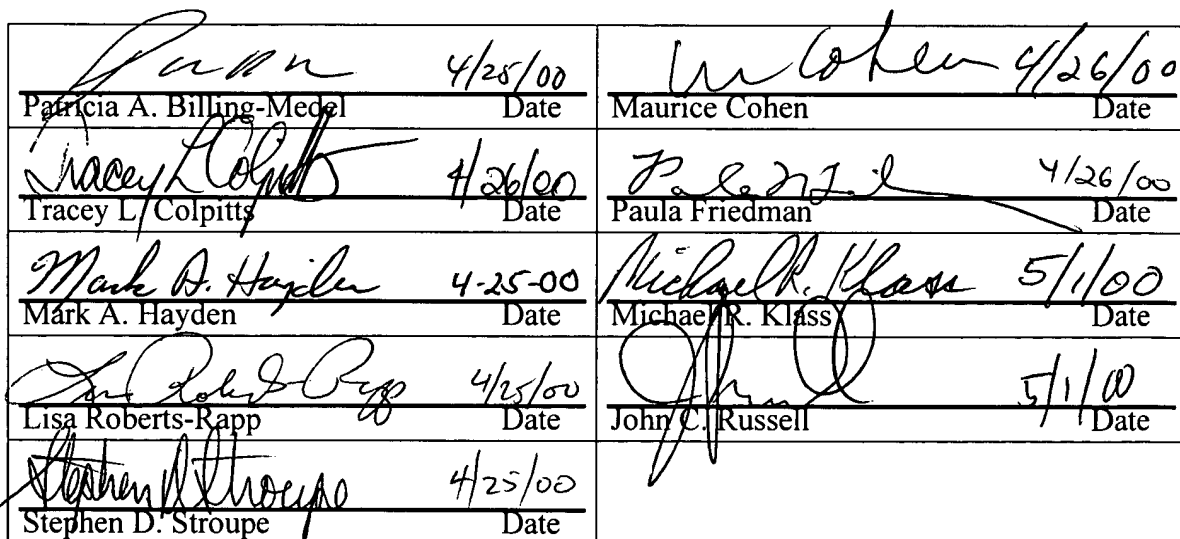 4/25/00
Patricia A. Billing-Medel Date
M Cohen 4/26/00
Maurice Cohen Date
Tracey L Colpitts 4/26/00
Tracey L. Colpitts Date
4/26/00
Paula Friedman Date
Mark A. Hayden 4-25-00
Mark A. Hayden Date
Michael R. Klass 5/1/00
Michael R. Klass Date
Lisa Roberts-Rapp 4/25/00
Lisa Roberts-Rapp Date
5/1/00
John C. Russell Date
Stephen D Stroupe 4/25/00
Stephen D. Stroupe Date